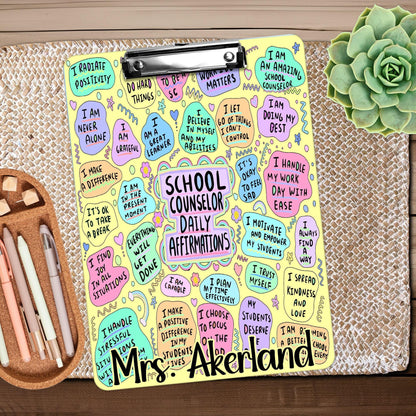 I RADIATE
POSITIVITY
DO HARD
THINGS
TO BE M
SC
WOR
MATTERS
I AM
AN AMAZING
SCHOOL
COUNSELOR
I AM
NEVER
ALONE
I AM
GRATEFUL
I AM
A GREAT
LEARNER
I
BELIEVE
IN MYSELF
AND MY
ABILITIES
I LET
GO OF THINGS
I CAN'T
CONTROL
I AM
DOING MY
BEST
I MAKE
A DIFFERENCE
I AM
IN THE
PRESENT
MOMENT
SCHOOL
COUNSELOR
DAILY
AFFIRMATIONS
IT'S
OKAY
TO FEEL
SAD
I HANDLE
MY WORK
DAY WITH
EASE
IT'S OK
TO TAKE
A BREAK
EVERYTHING
WILL
GET
DONE
I MOTIVATE
AND EMPOWER
MY STUDENTS
I
ALWAYS
FIND
A
WAY
I FIND
JOY
IN ALL
SITUATIONS
I AM
CAPABLE
I PLAN
MY TIME
EFFECTIVELY
I TRUST
MYSELF
I SPREAD
KINDNESS
AND
LOVE
I HANDLE
STRESSFUL
SITUATIONS
I MAKE
A POSITIVE
DIFFERENCE
IN MY
STUDENTS
I CHOOSE
TO FOCUS
MY
STUDENTS
DESERVE
I AM
A BETTE
Mrs. Akerland